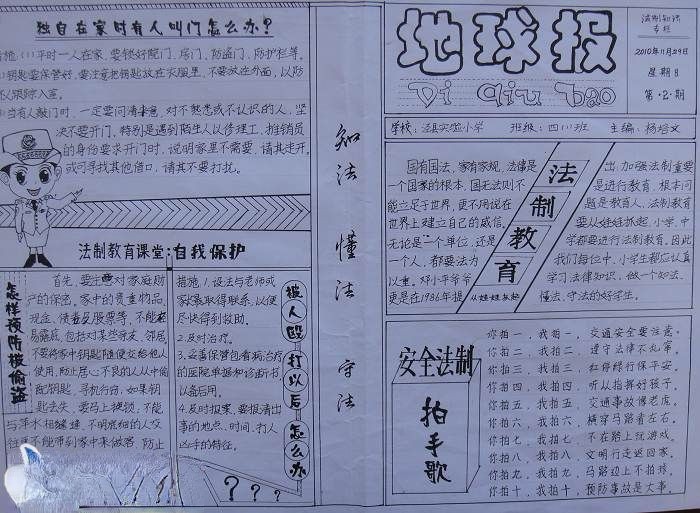 独自在家时有人叫门怎么办?
措施:(1)平时一人在家,要锁好院门、居门、防盗门、防护栏等。
钥匙要保管好,要注意把钥匙放在衣服里,不要放在外面,以防
跟踪入室。
当有人敲门时,一定要问清来意,对不熟悉或不认识的人,坚
决不要开门,特别是遇到陌生人以修理工、推销员
的身份要求开门时,说明家里不需要,请其走开。
或可寻找其他借口,请其不要打扰。
法制教育课堂:自我保护
怎样预防被偷盗
首先,要注意对家庭财
产的保密,家中的贵重物品,
现金、债券及股票等,不能轻
易露底,包括对某些分支、邻居,
不要将家中钥匙随便交给他人
使用,防止居心不良的人从中偷
配钥匙,寻机行窃,如果钥
匙丢失,要马上换锁,不能
与萍水相逢,不明底细的人交
往更不能带到家中来做客,防止
被人殴打以后怎么办
措施:1、设法与老师或
家长取得联系,以便
尽快得到救助。
2.及时治疗。
3.妥善保管包看病治疗
的医院单据和诊断书
以备后用。
4.及时报案,要报清出
事的地点、时间、打人
凶手的特征。
? ? ?
知法 懂法 守法
地球报
Di Qiu bao
法制知识
专栏
2010年11月29日
星期日
第·2·期
学校:法县实验小学 班级:四(1)班 主编:杨培文
国有国法,家有家规,法律是
一个国家的根本,国无法则不
能立足于世界,更不用说在
世界上建立自己的威信,
无论是一个单位,还是
一个人,都要法为
以重。邓小平爷爷
更是在1986年提
法制教育
从娃娃抓起
出,加强法制重要
是进行教育,根本问
题是教育人,法制教育
要从娃娃抓起,小学、中
学都要进行法制教育,因此
我们每位中、小学生都应认真
学习法律知识,做一个知法、
懂法、守法的好学生。
安全法制
拍手歌
你拍一,我拍一,交通安全要注意。
你拍二,我拍二,遵守法律不乱穿。
你拍三,我拍三,红停绿行保平安。
你拍四,我拍四,听从指挥好孩子。
你拍五,我拍五,交通事故像老虎。
你拍六,我拍六,横穿马路看左右。
你拍七,我拍七,不在路上玩游戏。
你拍八,我拍八,文明行走返回家。
你拍九,我拍九,马路边上不拍球。
你拍十,我拍十,预防事故是大事。